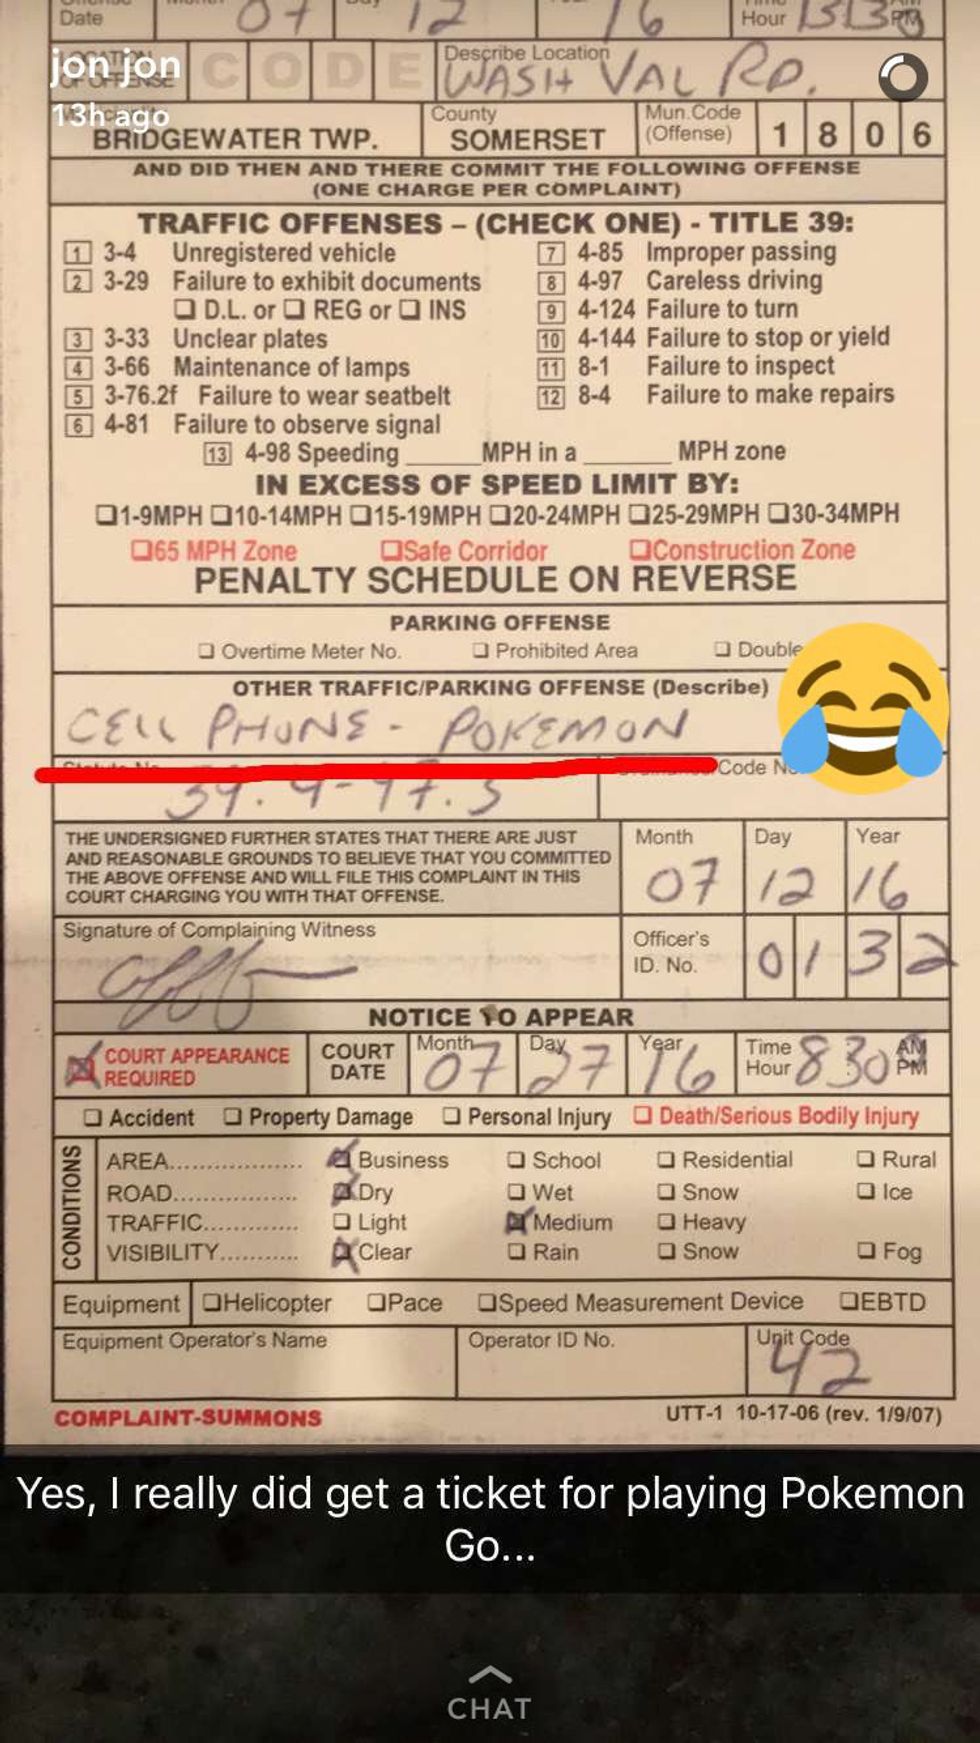 Date 07 12 16 Hour PM
jon jon
13h ago
CODE
Describe Location
WASH VAL RD.
BRIDGEWATER TWP.
County
SOMERSET
Mun.Code
(Offense)
1 8 0 6
AND DID THEN AND THERE COMMIT THE FOLLOWING OFFENSE
(ONE CHARGE PER COMPLAINT)
TRAFFIC OFFENSES – (CHECK ONE) - TITLE 39:
1 3-4 Unregistered vehicle
2 3-29 Failure to exhibit documents
D.L. or REG or INS
3 3-33 Unclear plates
4 3-66 Maintenance of lamps
5 3-76.2f Failure to wear seatbelt
6 4-81 Failure to observe signal
7 4-85 Improper passing
8 4-97 Careless driving
9 4-124 Failure to turn
10 4-144 Failure to stop or yield
11 8-1 Failure to inspect
12 8-4 Failure to make repairs
13 4-98 Speeding ______ MPH in a ______ MPH zone
IN EXCESS OF SPEED LIMIT BY:
1-9MPH 10-14MPH 15-19MPH 20-24MPH 25-29MPH 30-34MPH
65 MPH Zone Safe Corridor Construction Zone
PENALTY SCHEDULE ON REVERSE
PARKING OFFENSE
Overtime Meter No. Prohibited Area Double
OTHER TRAFFIC/PARKING OFFENSE (Describe)
CELL PHONE - POKEMON
Code
39.4-97.3
THE UNDERSIGNED FURTHER STATES THAT THERE ARE JUST
AND REASONABLE GROUNDS TO BELIEVE THAT YOU COMMITTED
THE ABOVE OFFENSE AND WILL FILE THIS COMPLAINT IN THIS
COURT CHARGING YOU WITH THAT OFFENSE.
Month Day Year
07 12 16
Signature of Complaining Witness
Officer's
ID. No.
0 1 3 2
NOTICE TO APPEAR
COURT APPEARANCE
REQUIRED
COURT
DATE
Month Day Year
07 27 16
Time
Hour
830
AM
PM
Accident Property Damage Personal Injury Death/Serious Bodily Injury
CONDITIONS
AREA.................. Business School Residential Rural
ROAD.................. Dry Wet Snow Ice
TRAFFIC............. Light Medium Heavy
VISIBILITY........... Clear Rain Snow Fog
Equipment Helicopter Pace Speed Measurement Device EBTD
Equipment Operator's Name Operator ID No. Unit Code
42
COMPLAINT-SUMMONS UTT-1 10-17-06 (rev. 1/9/07)
Yes, I really did get a ticket for playing Pokemon
Go...
CHAT